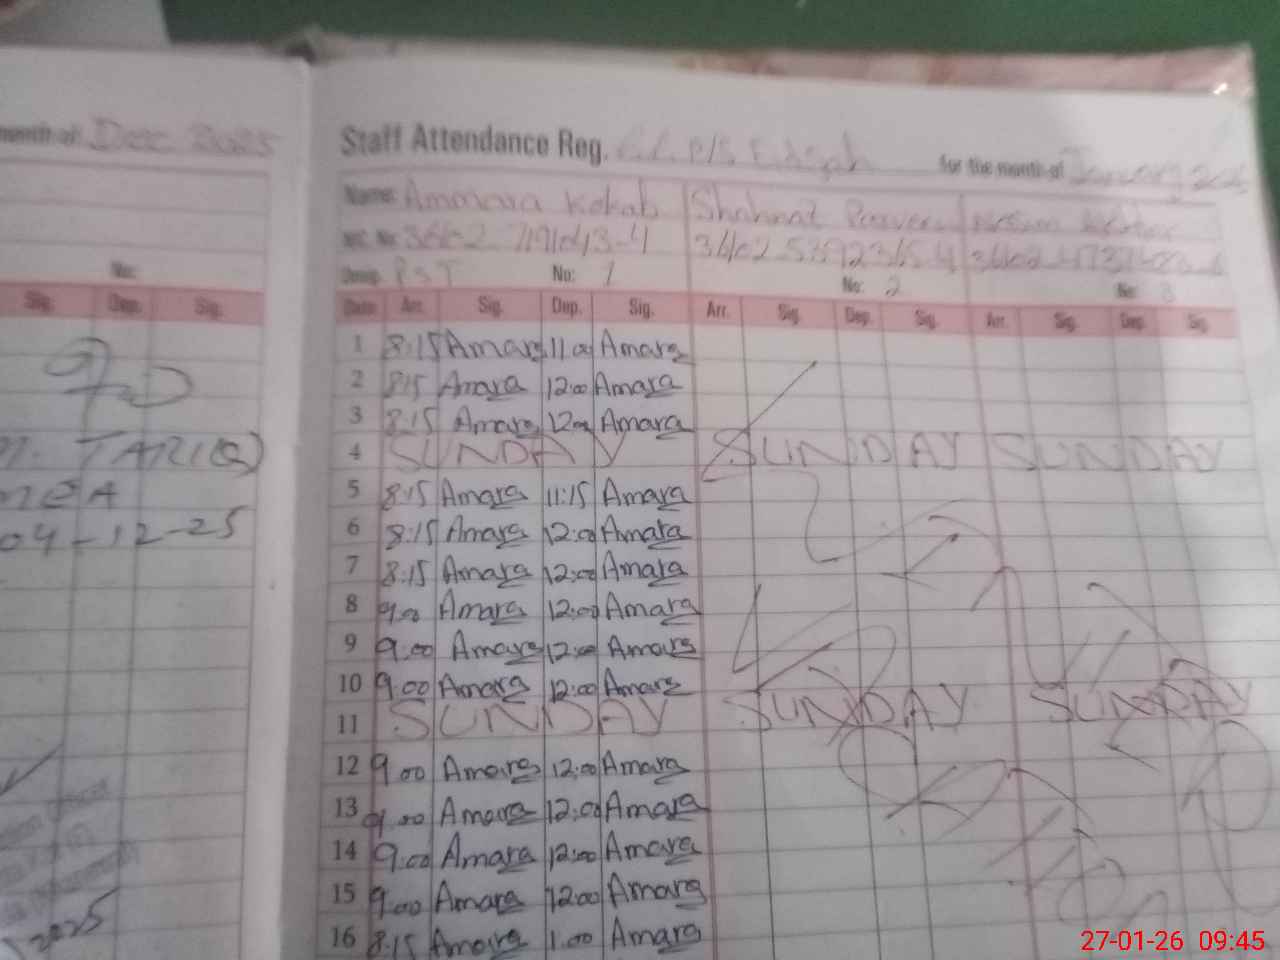 month of Dec 2025
No:
Sig. Dep. Sig.
TARIQ
04-12-25
2025
Staff Attendance Reg. for the month of January
Name: Ammara Kokab Shahnaz Parveen
No:
Desig. PST No: 1 No: 2 No: 3
Date Arr. Sig. Dep. Sig. Arr. Sig. Dep. Sig. Arr. Sig. Dep. Sig.
1 8:15 Amara 11:00 Amara
2 8:15 Amara 12:00 Amara
3 8:15 Amara 12:00 Amara
4 SUNDAY SUNDAY SUNDAY
5 8:15 Amara 11:15 Amara
6 8:15 Amara 12:00 Amara
7 8:15 Amara 12:00 Amara
8 9:00 Amara 12:00 Amara
9 9:00 Amara 12:00 Amara
10 9:00 Amara 12:00 Amara
11 SUNDAY SUNDAY SUNDAY
12 9:00 Amara 12:00 Amara
13 9:00 Amara 12:00 Amara
14 9:00 Amara 12:00 Amara
15 9:00 Amara 12:00 Amara
16 8:15 Amara 1:00 Amara
27-01-26 09:45